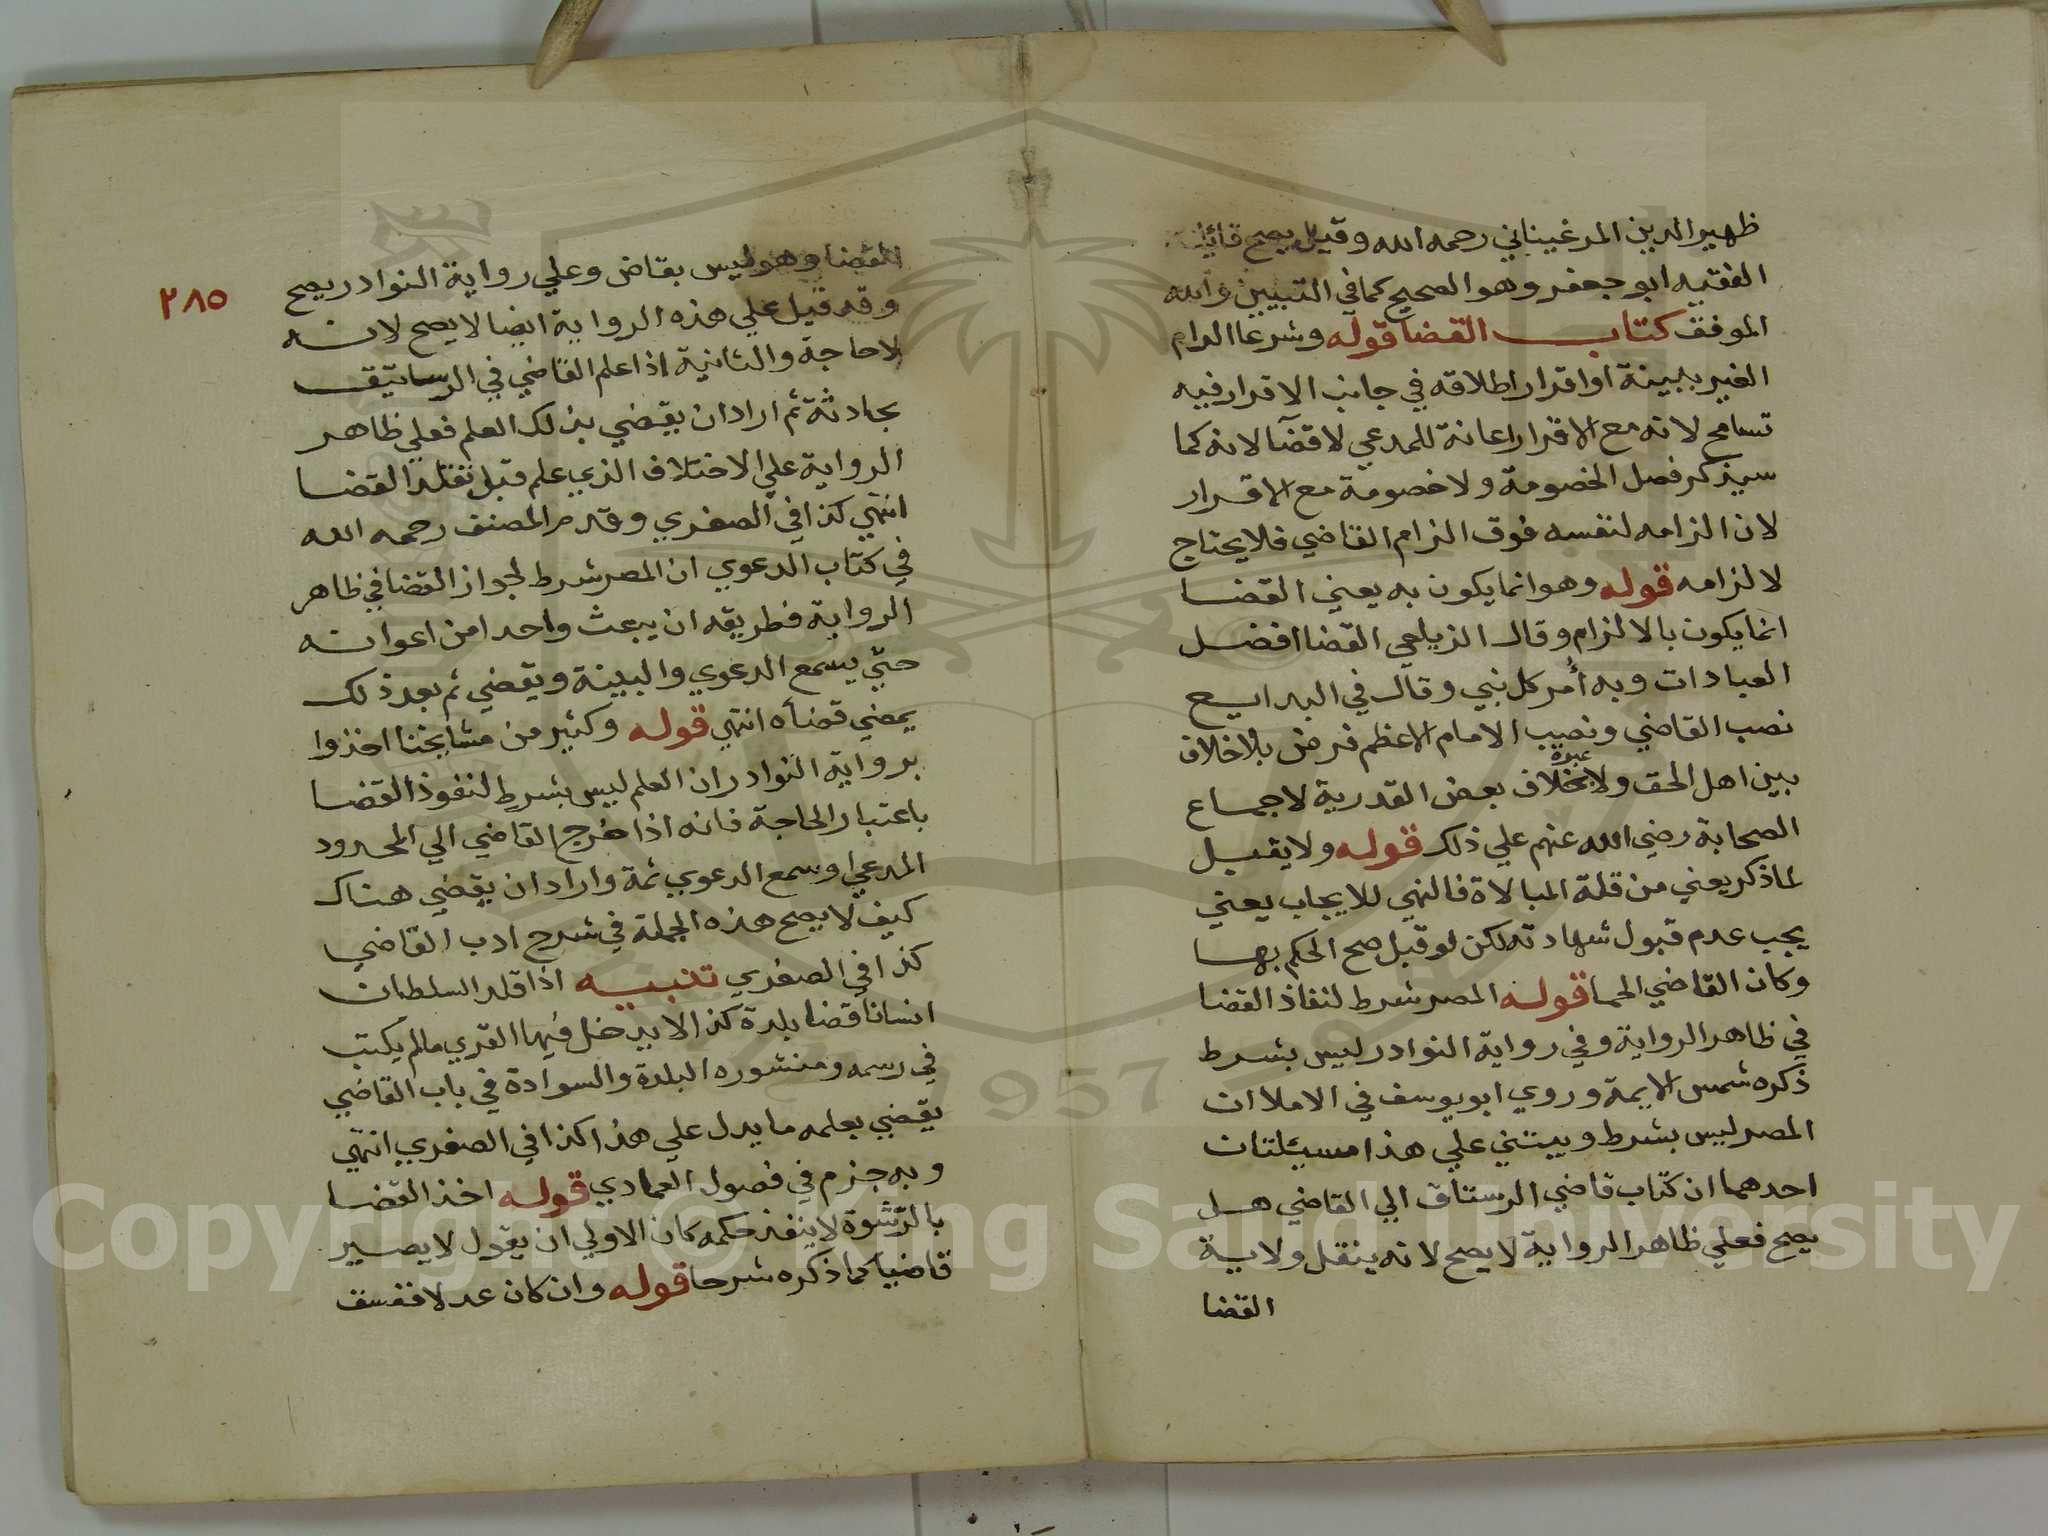 ظهير الدين المرغيناني رحمه الله وقيل يصح قاله
الفقيه ابو جعفر وهو الصحيح كما في التبيين والله
الموفق كتاب القضا قوله وشرعا الزام
الغير ببينة او اقرار اطلاقه في جانب الاقرار فيه
تسامح لانه مع الاقرار اعانة للمدعي لا قضآ لانه كما
سيذكر فصل الخصومة ولا خصومة مع الاقرار
لان الزامه لنفسه فوق الزام القاضي فلا يحتاج
لالزامه قوله وهو انما يكون به يعني القضا
انما يكون بالالزام وقال الزيلعي القضا افضل
العبادات وبه أُمر كل نبي وقال في البدايع
نصب القاضي ونصب الامام الاعظم فرض بلا خلاف
بين اهل الحق ولا عبرة بخلاف بعض القدرية لاجماع
الصحابة رضي الله عنهم علي ذلك قوله ولا يقبل
لما ذكر يعني من قلة المبالاة فالنهي للايجاب يعني
يجب عدم قبول شهادته لكن لو قبل صح الحكم بها
وكان القاضي اثما قوله المصر شرط لنفاذ القضا
في ظاهر الرواية وفي رواية النوادر ليس بشرط
ذكره شمس الايمة وروي ابو يوسف في الاملا ان
المصر ليس بشرط ويبتني علي هذا مسئلتان
احدهما ان كتاب قاضي الرستاق الي القاضي هل
يصح فعلي ظاهر الرواية لا يصح لانه ينقل ولاية
القضا
٢٨٥
القضا وهو ليس بقاض وعلي رواية النوادر يصح
وقد قيل علي هذه الرواية ايضا لا يصح لانه
لا حاجة والثانية اذا علم القاضي في الرساتيق
بحادثة ثم اراد ان يقضي بذلك العلم فعلي ظاهر
الرواية علي الاختلاف الذي علم قبل تقلد القضا
انتهي كذا في الصغري وقدم المصنف رحمه الله
في كتاب الدعوي ان المصر شرط لجواز القضا في ظاهر
الرواية فطريقه ان يبعث واحدا من اعوانه
حتي يسمع الدعوي والبينة ويقضي ثم بعد ذلك
يمضي قضآه انتهي قوله وكثير من مشايخنا اخذوا
برواية النوادر ان العلم ليس بشرط لنفوذ القضا
باعتبار الحاجة فانه اذا خرج القاضي الي المحدود
المدعي وسمع الدعوي ثمة واراد ان يقضي هناك
كيف لا يصح هذه الجملة في شرح ادب القاضي
كذا في الصغري تنبيه اذا قلد السلطان
انسانا قضا بلدة كذا لا يدخل فيها القري ما لم يكتب
في رسمه ومنشوره البلدة والسوادة في باب القاضي
يقضي بعلمه ما يدل علي هذا كذا في الصغري انتهي
وبه جزم في فصول العمادي قوله اخذ القضا
بالرشوة لا ينفذ حكمه كان الاولي ان يقول لا يصير
قاضيا كما ذكره شرحا قوله وان كان عدلا ففسق
Copyright © King Saud University
1957